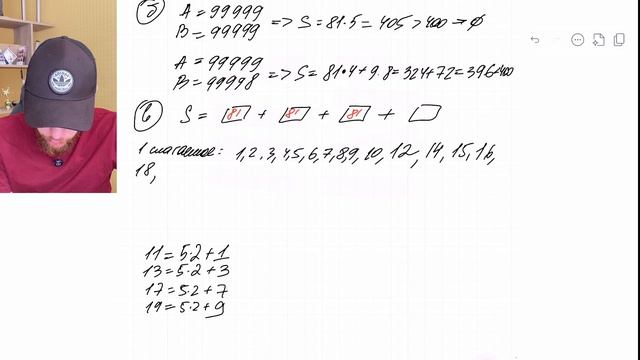 б) A = 99999
B = 99999 => S = 81·5 = 405 > 400 → ∅
A = 99999
B = 99998 => S = 81·4 + 9·8 = 324 + 72 = 396 < 400
в) S = 81 + 81 + 81 +
1 слагаемое: 1, 2, 3, 4, 5, 6, 7, 8, 9, 10, 12, 14, 15, 16,
18,
11 = 5·2 + 1
13 = 5·2 + 3
17 = 5·2 + 7
19 = 5·2 + 9
adidas